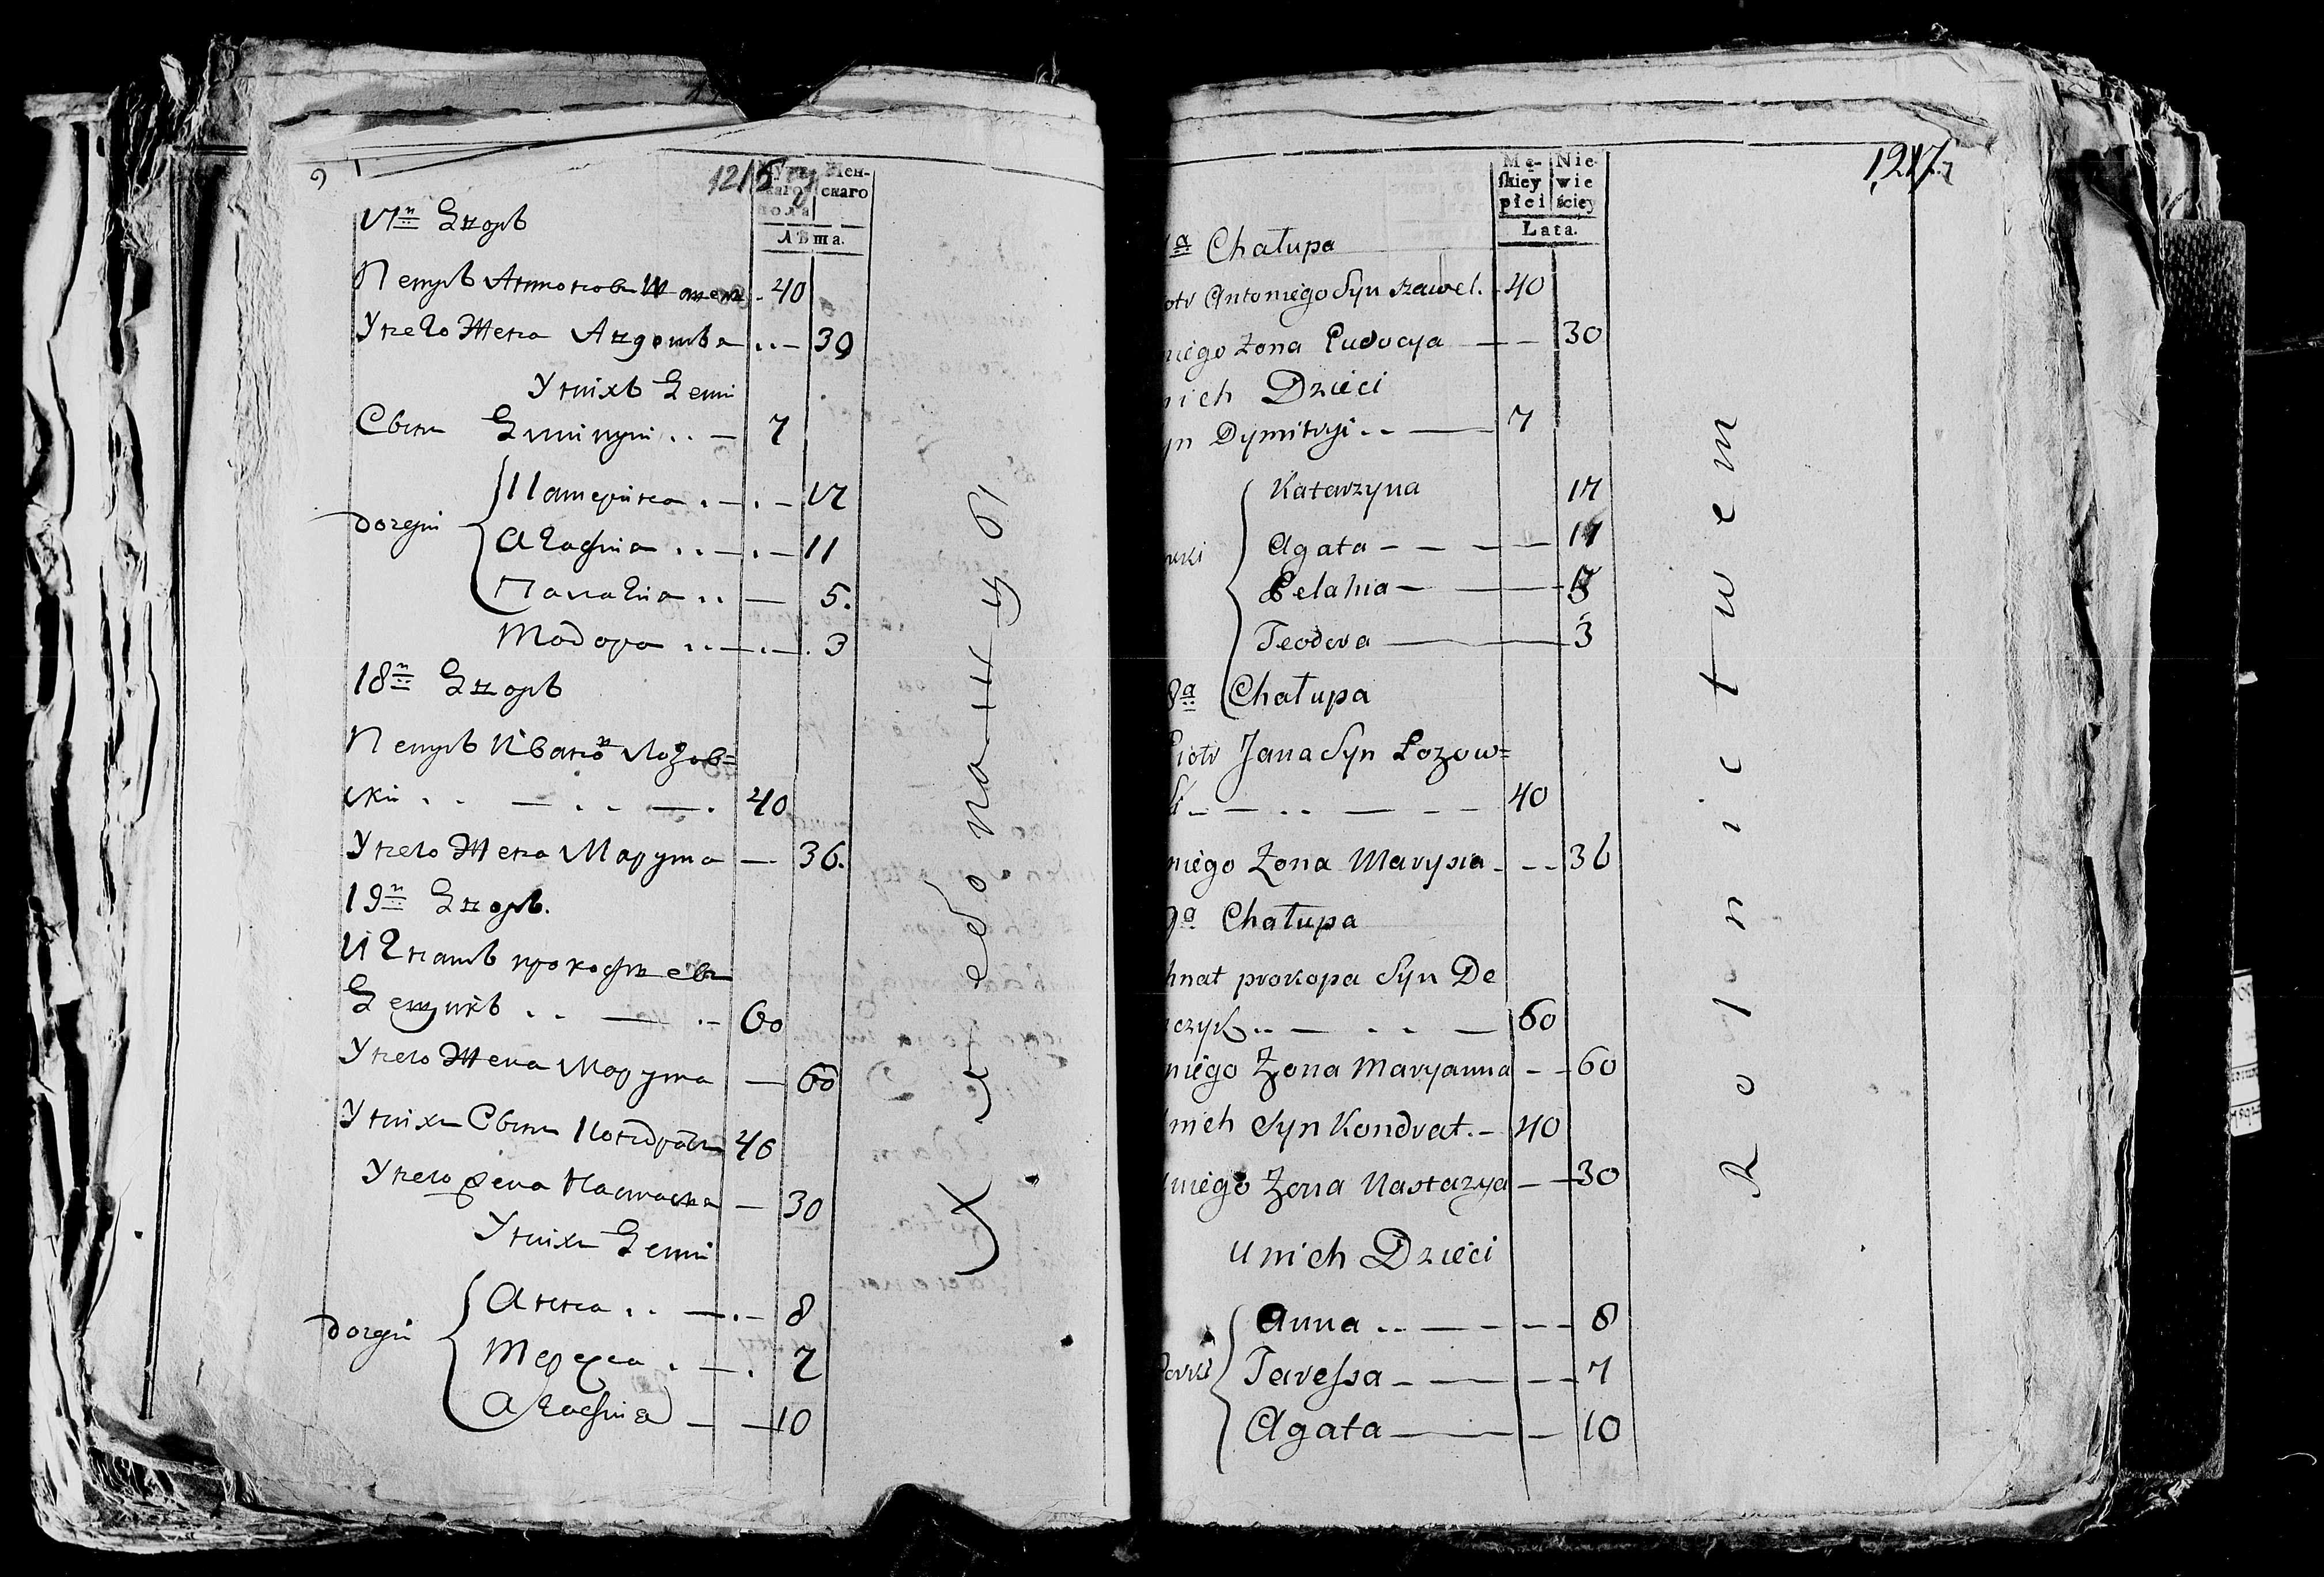 1216
Мужскаго Женскаго
пола
Лѣта.
17й Дворъ
Петръ Антоновъ 40
У него Жена Авдотья 30
У нихъ Дети
Сынъ Дмитрій 7
дочери Катерина 17
Агафия 11
Палагия 5.
Тодора 3
18й Дворъ
Петръ Иванов Лозов=
скій 40
У него Жена Марута 36.
19й Дворъ.
Игнатъ прокофьевъ
Демчикъ 60
У него Жена Марута 60
У нихъ Сынъ Кондратъ 40
У него жена Настасья 30
У нихъ Дети
дочери Анна 8
Тереса 7
Агафия 10
Хлебопа
1217.
Mę- Nie
skiey wie
płci ściey
Lata.
a Chałupa
otr Antoniego Syn Szawel. 40
niego Zona Eudocya 30
nich Dzieci
yn Dymitryi 7
Katarzyna 17
Agata 11
Pelahia
Teodora 3
8a Chałupa
Piotr Jana Syn Łozow=
ski 40
niego Zona Marysia 36
9a Chałupa
hnat prokopa Syn De
mczyk 60
niego Zona Maryanna 60
nich Syn Kondrat. 40
niego Zona Nastazya 30
u nich Dzieci
Anna 8
Taressa 7
Agata 10
Rolnictwem